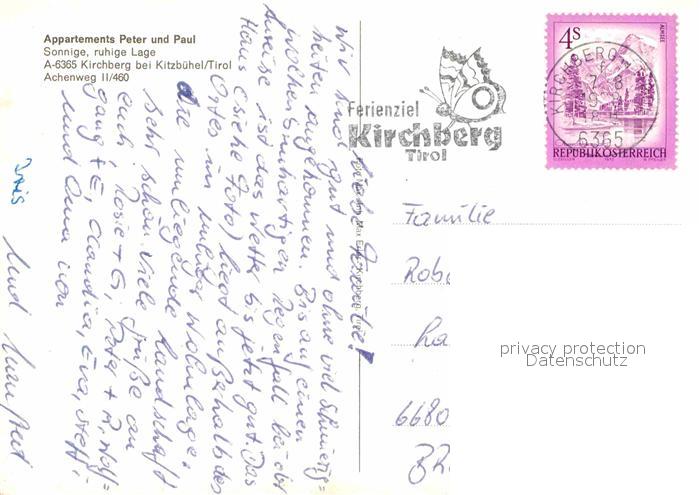 Appartements Peter und Paul
Sonnige, ruhige Lage
A-6365 Kirchberg bei Kitzbühel/Tirol
Achenweg II/460
Ferienziel
Kirchberg
Tirol
4s
ALMSEE
REPUBLIK ÖSTERREICH
KIRCHBERG
6365
Liebe Familie!
Wir sind gut und ohne viel Schwierig=
keiten angekommen. Bis auf einen
wochen Regenfall bei der
Anreise ist das Wetter bis jetzt gut. Das
Haus (siehe Foto) liegt außerhalb des
Ortes in ruhiger Wohnlage.
Die umliegende Landschaft
sehr schön. Viele Grüße an
euch, Rosie + G., Peter + R., Wolf=
gang + E., Claudia, Eva, Steffi
und Oma von
Iris
und Manfred
Familie
Rob
La
6680
privacy protection
Datenschutz